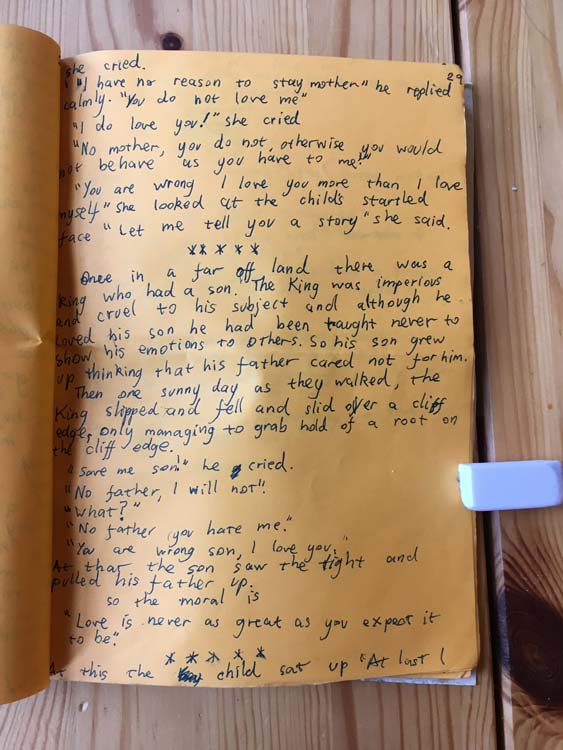 she cried.
29
"I have no reason to stay mother" he replied
calmly. "You do not love me"
"I do love you!" she cried
"No mother, you do not, otherwise you would
not behave as you have to me!"
"You are wrong I love you more than I love
myself" She looked at the childs startled
face "Let me tell you a story" she said.
* * * * *
Once in a far off land there was a
King who had a son. The King was imperious
and cruel to his subject and although he
loved his son he had been taught never to
show his emotions to others. So his son grew
up thinking that his father cared not for him.
Then one sunny day as they walked, the
King slipped and fell and slid over a cliff
edge, only managing to grab hold of a root on
the cliff edge.
"Save me son!" he cried.
"No father, I will not"!
"What?"
"No father you hate me."
"You are wrong son, I love you."
At that the son saw the light and
pulled his father up.
so the moral is
"Love is never as great as you expect it
to be."
* * * * *
At this the child sat up "At last I